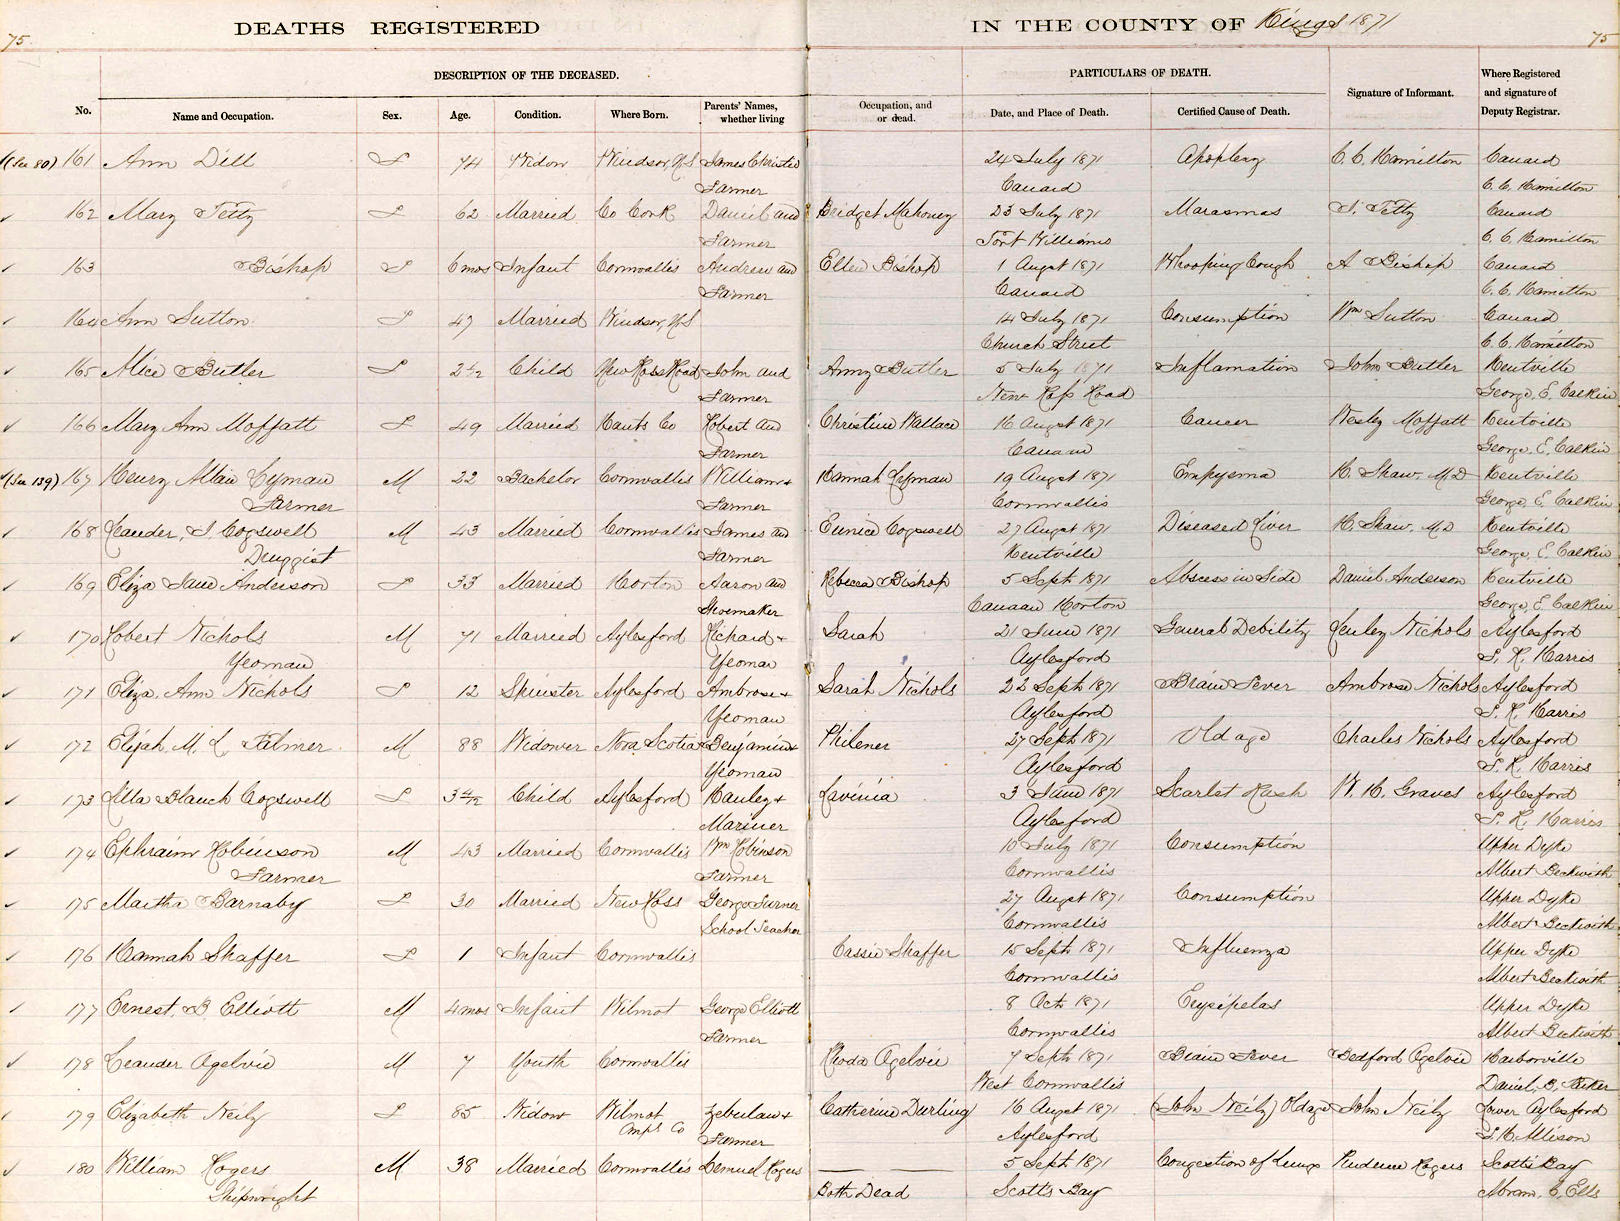 75. DEATHS REGISTERED IN THE COUNTY OF Kings 1871 75
DESCRIPTION OF THE DECEASED. PARTICULARS OF DEATH.
No. Name and Occupation. Sex. Age. Condition. Where Born. Parents' Names, whether living Occupation, and or dead. Date, and Place of Death. Certified Cause of Death. Signature of Informant. Where Registered and signature of Deputy Registrar.
(See 80) 161 Ann Dill F 74 Widow Windsor, N S James Christie 24 July 1871 Apoplexy C. C. Hamilton Canard
Farmer Canard C. C. Hamilton
162 Mary Tetty F 62 Married Co Cork Daniel and Bridget Mahoney 23 July 1871 Marasmas T. Tetty Canard
Farmer Port Williams C. C. Hamilton
163 Bishop F 6 mos Infant Cornwallis Andrew and Ellen Bishop 1 Augst 1871 Whooping Cough A Bishop Canard
Farmer Canard C. C. Hamilton
164 Ann Sutton F 47 Married Windsor, N S 14 July 1871 Consumption Wm Sutton Canard
Church Street C. C. Hamilton
165 Alice Butler F 2 4/12 Child New Ross Road John and Anny Butler 5 July 1871 Inflamation John Butler Kentville
Farmer New Ross Road George E. Calkin
166 Mary Ann Moffatt F 49 Married Hants Co Robert and Christine Wallace 16 August 1871 Cancer Wesley Moffatt Kentville
Farmer Canaan George. E. Calkin
(See 139) 167 Henry Allan Lyman M 22 Bachelor Cornwallis William + Hannah Lyman 19 Augst 1871 Empyema H. Shaw. M.D Kentville
Farmer Farmer Cornwallis George E. Calkin
168 Leander, S. Cogswell M 43 Married Cornwallis James and Eunice Cogswell 27 Augst 1871 Diseased Liver H. Shaw. M.D Kentville
Druggist Farmer Kentville George, E. Calkin
169 Eliza Jane Anderson F 33 Married Horton Aaron and Rebecca Bishop 5 Sept 1871 Abscess in Side Daniel Anderson Kentville
Shoemaker Canaan Horton George, E Calkin
170 Robert Nichols M 71 Married Aylesford Richard + Sarah 21 June 1871 General Debility Henley Nichols Aylesford
Yeoman Yeoman Aylesford S. R. Harris
171 Eliza, Ann Nichols F 12 Spinster Aylesford Ambrose + Sarah Nichols 22 Sept 1871 Brain Fever Ambrose Nichols Aylesford
Yeoman Aylesford S. R. Harris
172 Elijah, M. L. Palmer M 88 Widower Nova Scotia Benjamin + Philener 27 Sept 1871 Old age Charles Nichols Aylesford
Yeoman Aylesford S. R. Harris
173 Lilla Blanch Cogswell F 3 4/12 Child Aylesford Hanley + Lavinia 3 June 1871 Scarlet Rash W. H. Graves Aylesford
Mariner Aylesford S. R. Harris
174 Ephraim Robinson M 43 Married Cornwallis Wm Robinson 10 July 1871 Consumption Upper Dyke
Farmer Farmer Cornwallis Albert Beckwith
175 Martha Barnaby F 30 Married New Ross George Turner 27 Augst 1871 Consumption Upper Dyke
School Teacher Cornwallis Albert Beckwith
176 Hannah Shaffer F 1 Infant Cornwallis Cassie Shaffer 15 Sept 1871 Influenza Upper Dyke
Cornwallis Albert Beckwith
177 Ernest. B Elliott M 4 mos Infant Wilmot George Elliott 8 Oct 1871 Erysipelas Upper Dyke
Farmer Cornwallis Albert Beckwith
178 Leander Ogelvie M 7 Youth Cornwallis Rhoda Ogelvie 7 Sept 1871 Brain Fever Bedford Ogelvie Harborville
West Cornwallis Daniel, B, Parker
179 Elizabeth Neily F 85 Widow Wilmot Zebulan + Catherine Durling 16 Augst 1871 (John Neily) Old age John Neily Lower Aylesford
Anpl Co Farmer Aylesford S. H. Allison
180 William Rogers M 38 Married Cornwallis Lemuel Rogers 5 Sept 1871 Congestion of Lungs Prudence Rogers Scotts Bay
Shipwright Both Dead Scotts Bay Abram, C, Ells